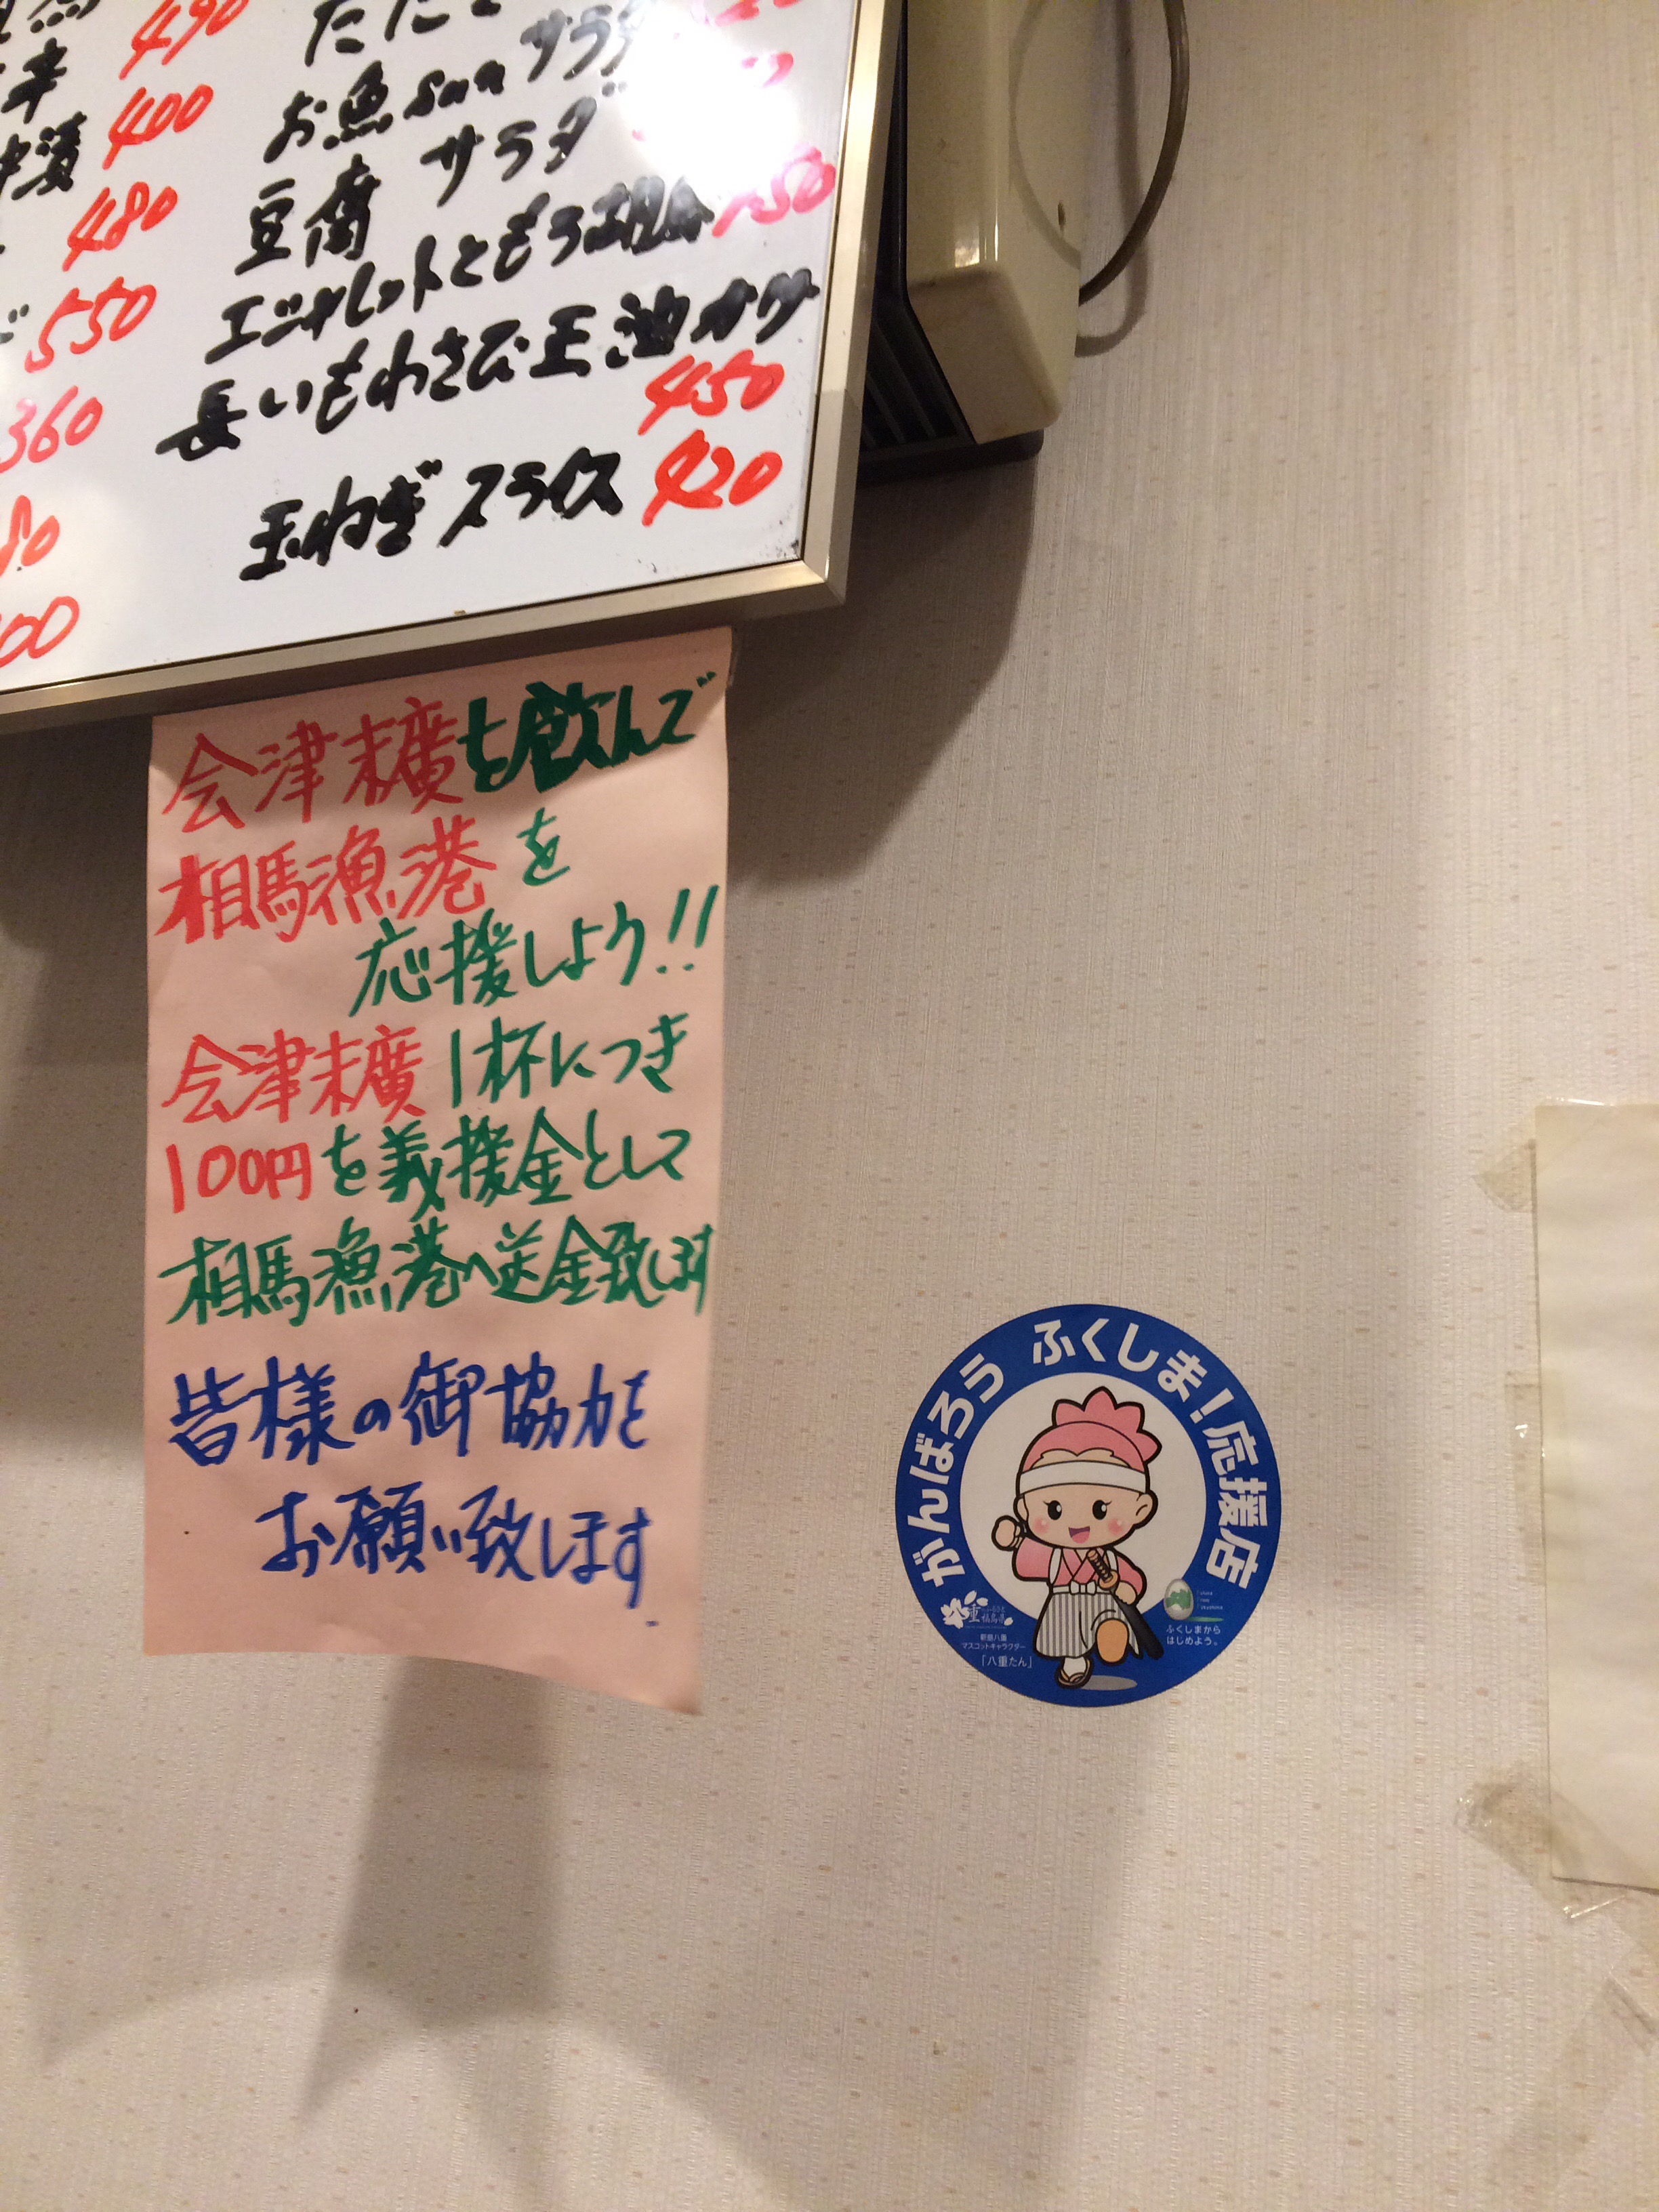 490
400
480
550
360
お魚sanサラダ
豆腐 サラダ
エシャレットともろ
長いもわさび玉油かけ
450
玉ねぎスライス 420
会津末廣を飲んで
相馬漁港を
応援しよう!!
会津末廣1杯につき
100円を義援金として
相馬漁港へ送金致します
皆様の御協力を
お願い致します
がんばろう ふくしま!応援店
八重のふるさと
福島県
新島八重
マスコットキャラクター
「八重たん」
ふくしまから
はじめよう。